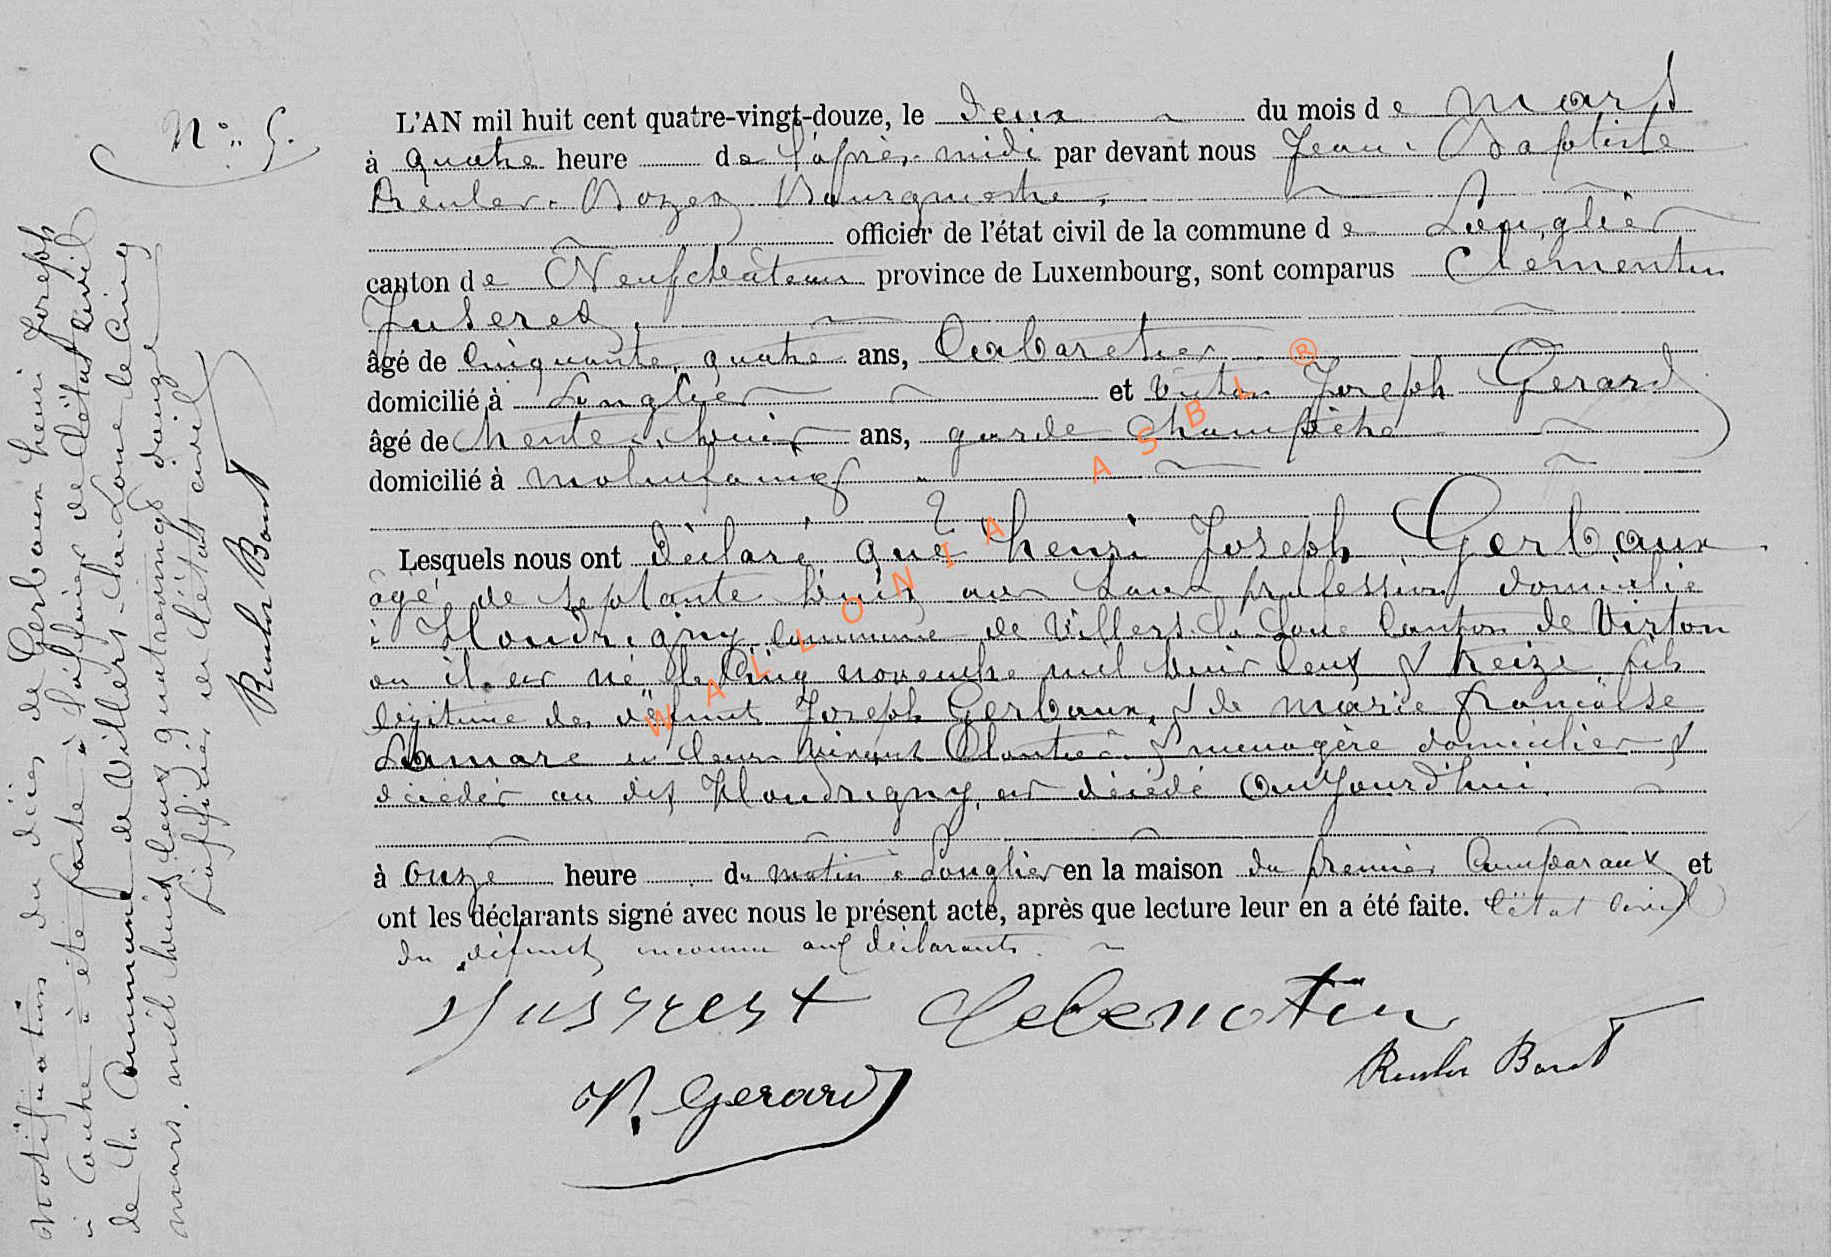 N° 5.
L'AN mil huit cent quatre-vingt-douze, le deux du mois de mars
à quatre heure de l'après-midi par devant nous Jean Baptiste
Reuler-Bozet Bourgmestre,
officier de l'état civil de la commune de Longlier
canton de Neufchâteau province de Luxembourg, sont comparus Clementin
Juseret,
âgé de Cinquante quatre ans, Cabaretier
domicilié à Longlier et Victor Joseph Gerard
âgé de trente-huit ans, garde Champètre
domicilié à molinfaing
Lesquels nous ont déclaré que henri Joseph Gerbaux
âgé de septante huit ans sans profession domicilié
à Houdrigny commune de Villers-la-Loue Canton de Virton
ou il est né le Cinq novembre mil huit cent et treize fils
légitime des défunts Joseph Gerbaux, et de marie françoise
Lamare en leur vivant et menagère domicilier et
décédér au dit Houdrigny, est décédé aujourd'hui
à onze heure du matin à Longlier en la maison du premier Comparaux et
ont les déclarants signé avec nous le présent acte, après que lecture leur en a été faite. l'état civil
du défunt inconnu aux déclarants.
Jusseret Clementin
V. Gerard
Notification du décès de Gerbaux henri Joseph
ci Contre à été faite à l'officier de l'état Civil
de la Commune de Villers-la-Loue le Cinq
mars mil huit cent quatrevingt douze
L'officier de l'état civil
WALLONIA ASBL ®